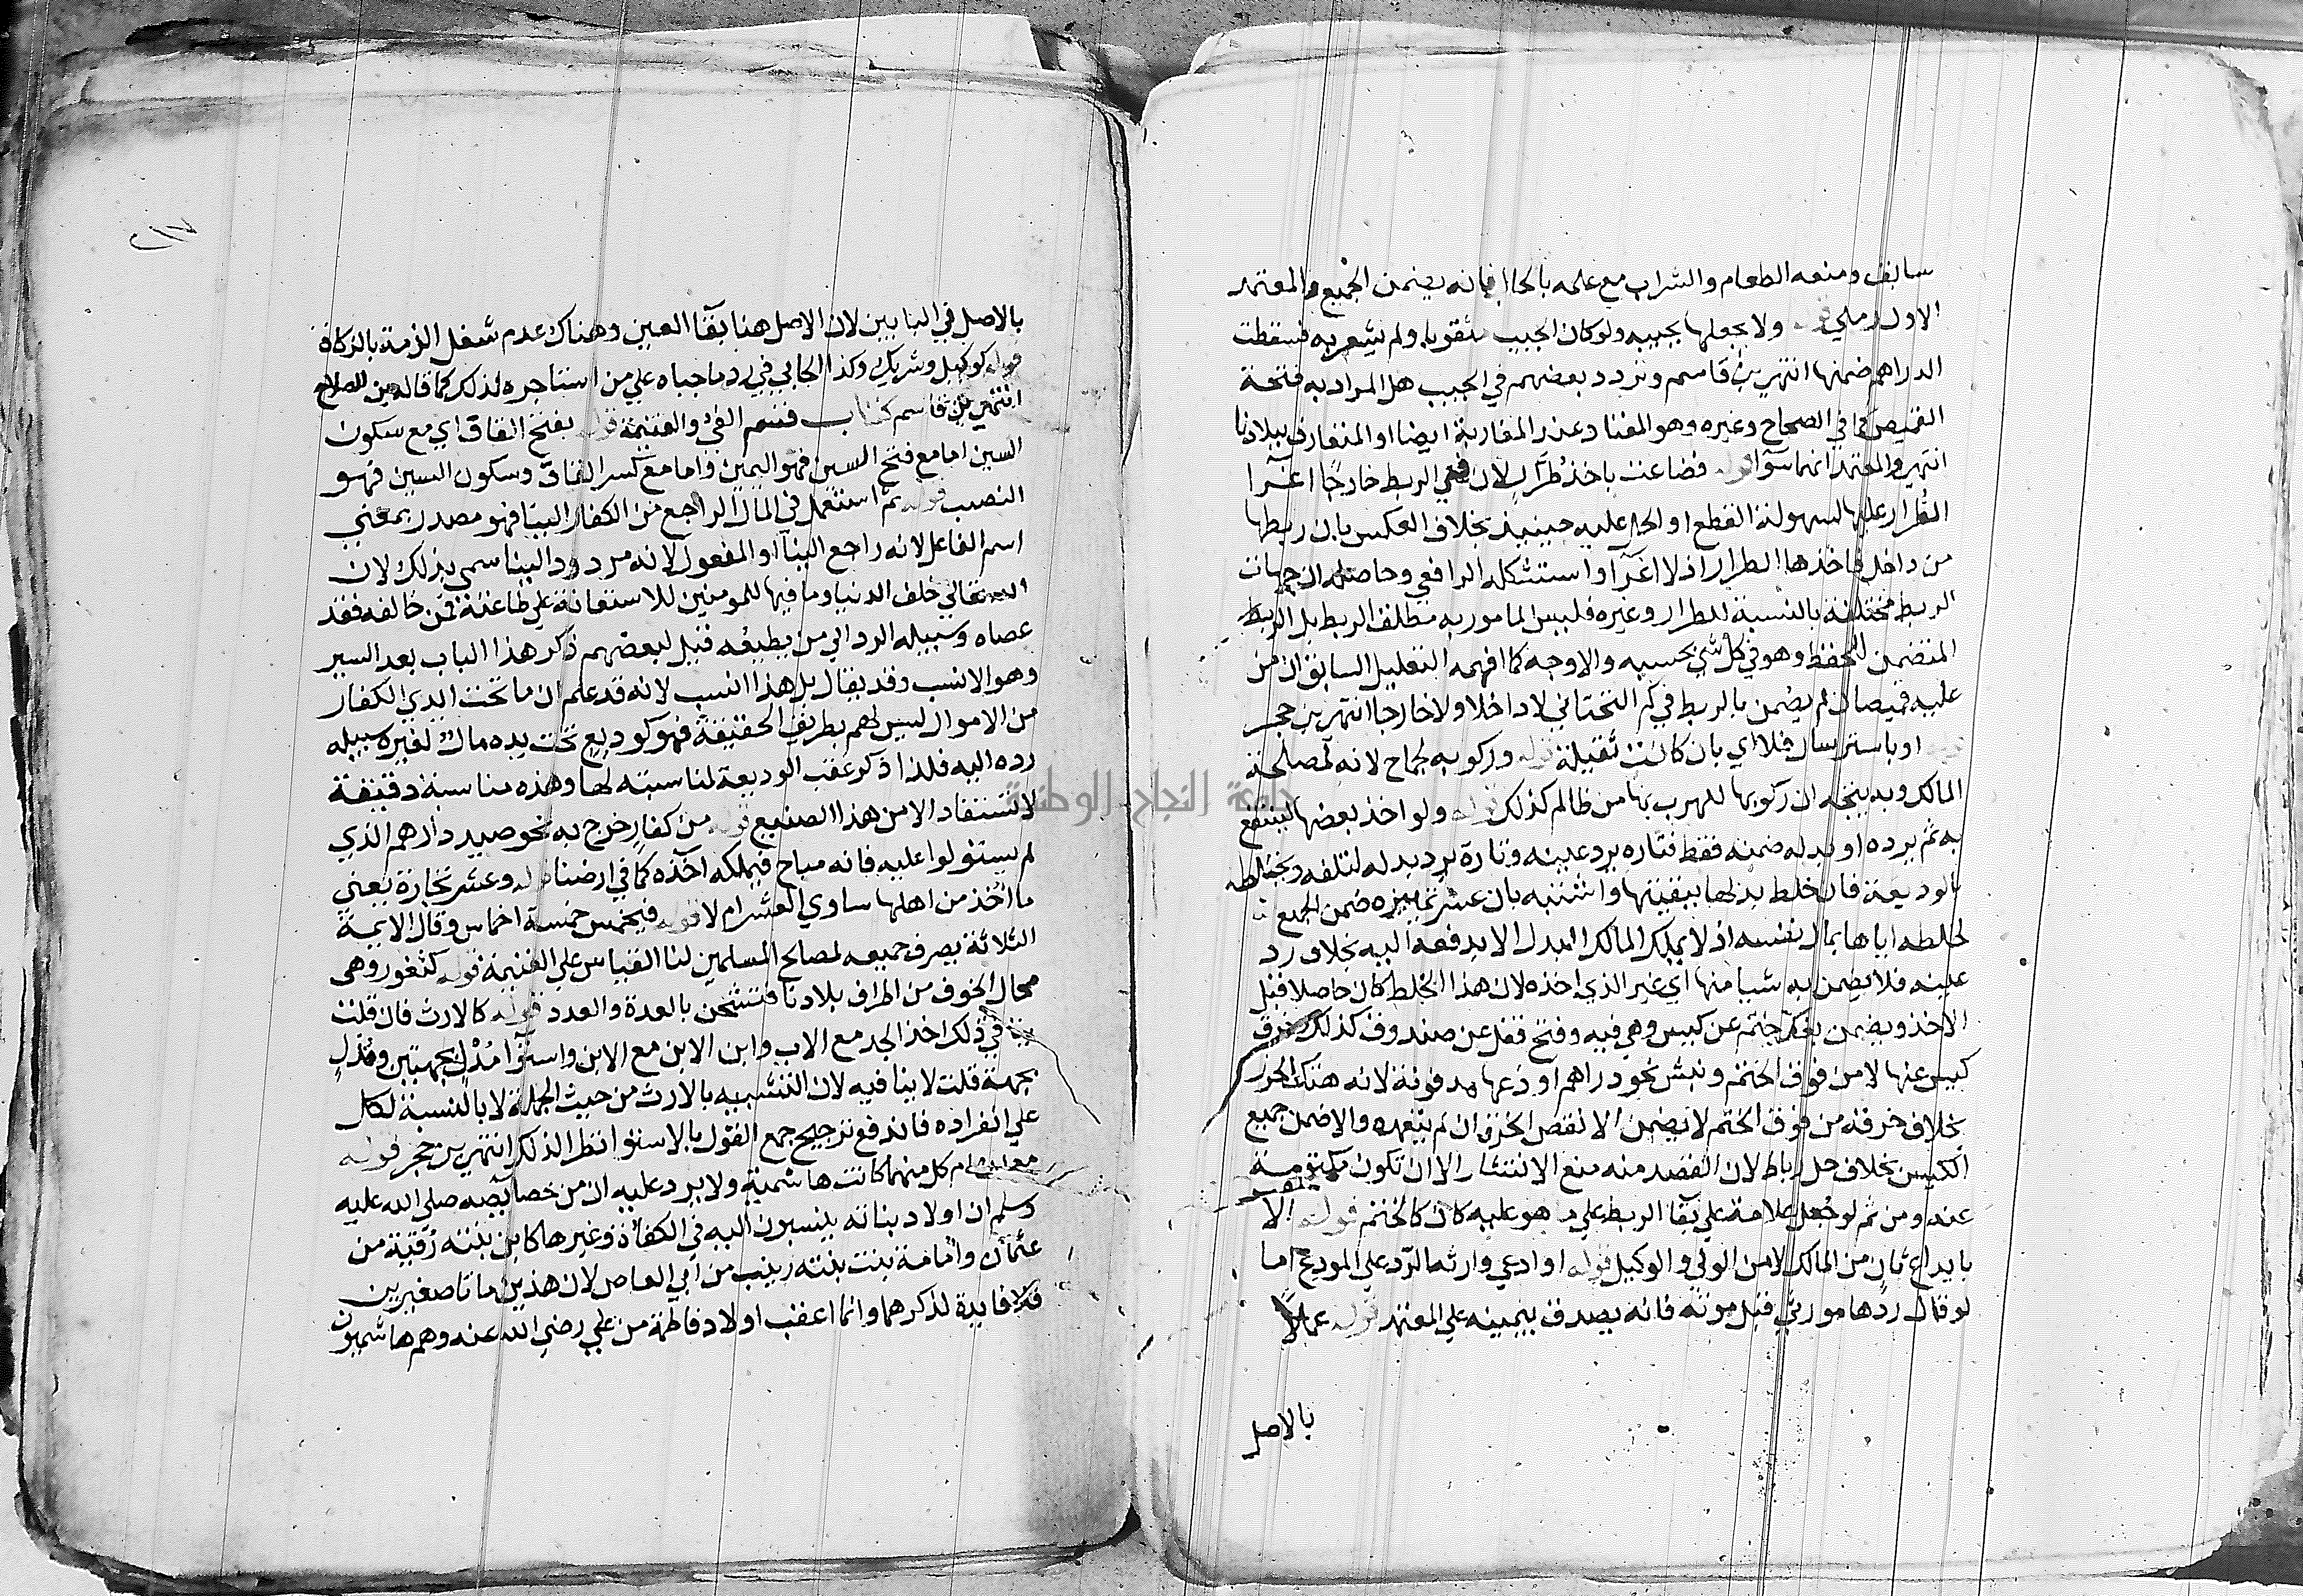 سابق ومنعه الطعام والشراب مع علمه بالحال فانه يضمن الجميع والمعتمد
الاول رملي قوله ولا بجعلها بجيبه ولو كان الجيب مثقوبا ولم يشعر به فسقطت
الدراهم ضمنها انتهي بن قاسم وتردد بعضهم في الجيب هل المراد به فتحة
القميص كما في الصحاح وغيره وهو المعتاد عند المغاربة ايضا او المتعارف ببلادنا
انتهي والمعتمد انهما سوآ قوله فضاعت باخذ طرار لان في الربط خارجا اغرآ
الطرار عليها لسهولة القطع او الحل عليه حينيذ بخلاف العكس بان ربطها
من داخل فاخذها الطرار اذ لا اغرآ واستشكله الرافعي وحاصله ان جهات
الربط مختلفة بالنسبة للطرار وغيره فليس المامور به مطلق الربط بل الربط
المتضمن للحفظ وهو في كل شي بحسبه والاوجه كما افهمه التعليل السابق ان من
عليه قميصان لم يضمن بالربط في كم التحتاني لا داخلا ولا خارجا انتهي بن حجر
او باسترسال فلا اي بان كانت ثقيلة قوله وركوبه لجماح لانه لمصلحة
المالك وبه يتجه ان ركوبها للهرب بها من ظالم كذلك قوله ولو اخذ بعضها لينتفع
به ثم يرده او بدله ضمنه فقط فتاره يرد عينه وتارة يرد بدله لتلفه ويخلطه
بالوديعة فان خلط بدلها ببقيتها واشتبه بان عسر تمييزه ضمن الجميع
لخلطه اياها بمال نفسه اذ لا يملك المالك البدل الا بدفعه اليه بخلاف رد
عينه فلا يضمن به شيا منها اي غير الذي اخذه لان هذا الخلط كان حاصلا قبل
الاخذ ويضمن بفك ختم عن كيس وهي فيه وفتح قفل عن صندوق كذلك وخرق
كيس عنها لا من فوق الختم ونبش نحو دراهم اودعها مدفونة لانه هتك الحرز
بخلاف خرقه من فوق الختم لا يضمن الا نقص الخرق ان لم يتعمده والا ضمن جميع
الكيس بخلاف حل رباط لان القصد منه منع الانتشار الا ان تكون مكتومة
عنه ومن ثم لو جعل علامة علي بقآ الربط علي ما هو عليه كان كالختم قوله الا
بايداع ثان من المالك لا من الولي والوكيل قوله او ادعي وارثه الرد علي المودع اما
لو قال ردها مورثي قبل موته فانه يصدق بيمينه علي المعتمد قوله عملا
بالاصل
٢١٧
بالاصل في البابين لان الاصل هنا بقآ العين وهناك عدم شغل الذمة بالزكاة
قوله كوكيل وشريك وكذا الجابي في رد ما جباه علي من استاجره لذلك كما قاله بن الصلاح
انتهي بن قاسم كتاب قسم الفئ والغنيمة قوله بفتح القاف اي مع سكون
السين اما مع فتح السين فهو اليمين واما مع كسر القاف وسكون السين فهو
النصيب قوله ثم استعمل في المال الراجع من الكفار الينا فهو مصدر بمعني
اسم الفاعل لانه راجع الينآ او المفعول لانه مردود الينا سمي بذلك لان
الله تعالي خلق الدنيا وما فيها للمومنين للاستعانة علي طاعته فمن خالفه فقد
عصاه وسبيله الرد الي من يطيعه قيل لبعضهم ذكر هذا الباب بعد السير
وهو الانسب وقد يقال بل هذا انسب لانه قد علم ان ما تحت ايدي الكفار
من الاموال ليس لهم بطريق الحقيقة فهو كوديع تحت يده مال لغيره سبيله
رده اليه فلذا ذكر عقب الوديعة لمناسبته لها وهذه مناسبة دقيقة
لا تستفاد الا من هذا الصنيع قوله من كفار خرج به نحو صيد دارهم الذي
لم يستولوا عليه فانه مباح فيملكه آخذه كما في ارضنا قوله وعشر تجارة يعني
ما اخذ من اهلها ساوي العشر ام لا قوله فيخمس خمسة اخماس وقال الايمة
الثلاثة يصرف جميعه لمصالح المسلمين لنا القياس علي الغنيمة قوله كثغور وهي
محال الخوف من اطراف بلادنا فتشحن بالعدة والعدد قوله كالارث فان قلت
في ذلك اخذ الجد مع الاب وابن الابن مع الابن واستوآ مدل بجهتين ومدل
بجهة قلت لا ينافيه لان التشبيه بالارث من حيث الجملة لا بالنسبة لكل
علي انفراده فاندفع ترجيح جمع القول بالاستوا نظرا لذلك انتهي بن حجر قوله
مع ان ام كل منهما كانت هاشمية ولا يرد عليه ان من خصايصه صلي الله عليه
وسلم ان اولاد بناته ينسبون اليه في الكفاءة وغيرها كابن بنته رقية من
عثمان وامامة بنت بنته زينب من ابي العاص لان هذين ماتا صغيرين
فلا فايدة لذكرهما وانما اعقب اولاد فاطمة من علي رضي الله عنه وهم هاشميون
جامعة النجاح الوطنية